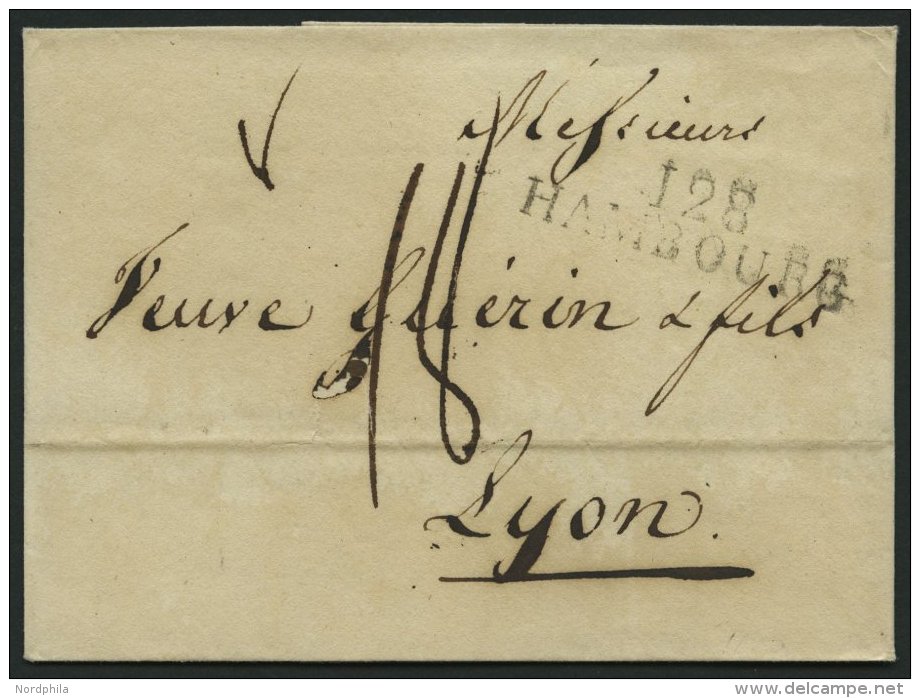 Messieurs
128
HAMBOURG
18
Veuve Guérin & fils
Lyon.
Nordphila
delcampe.net